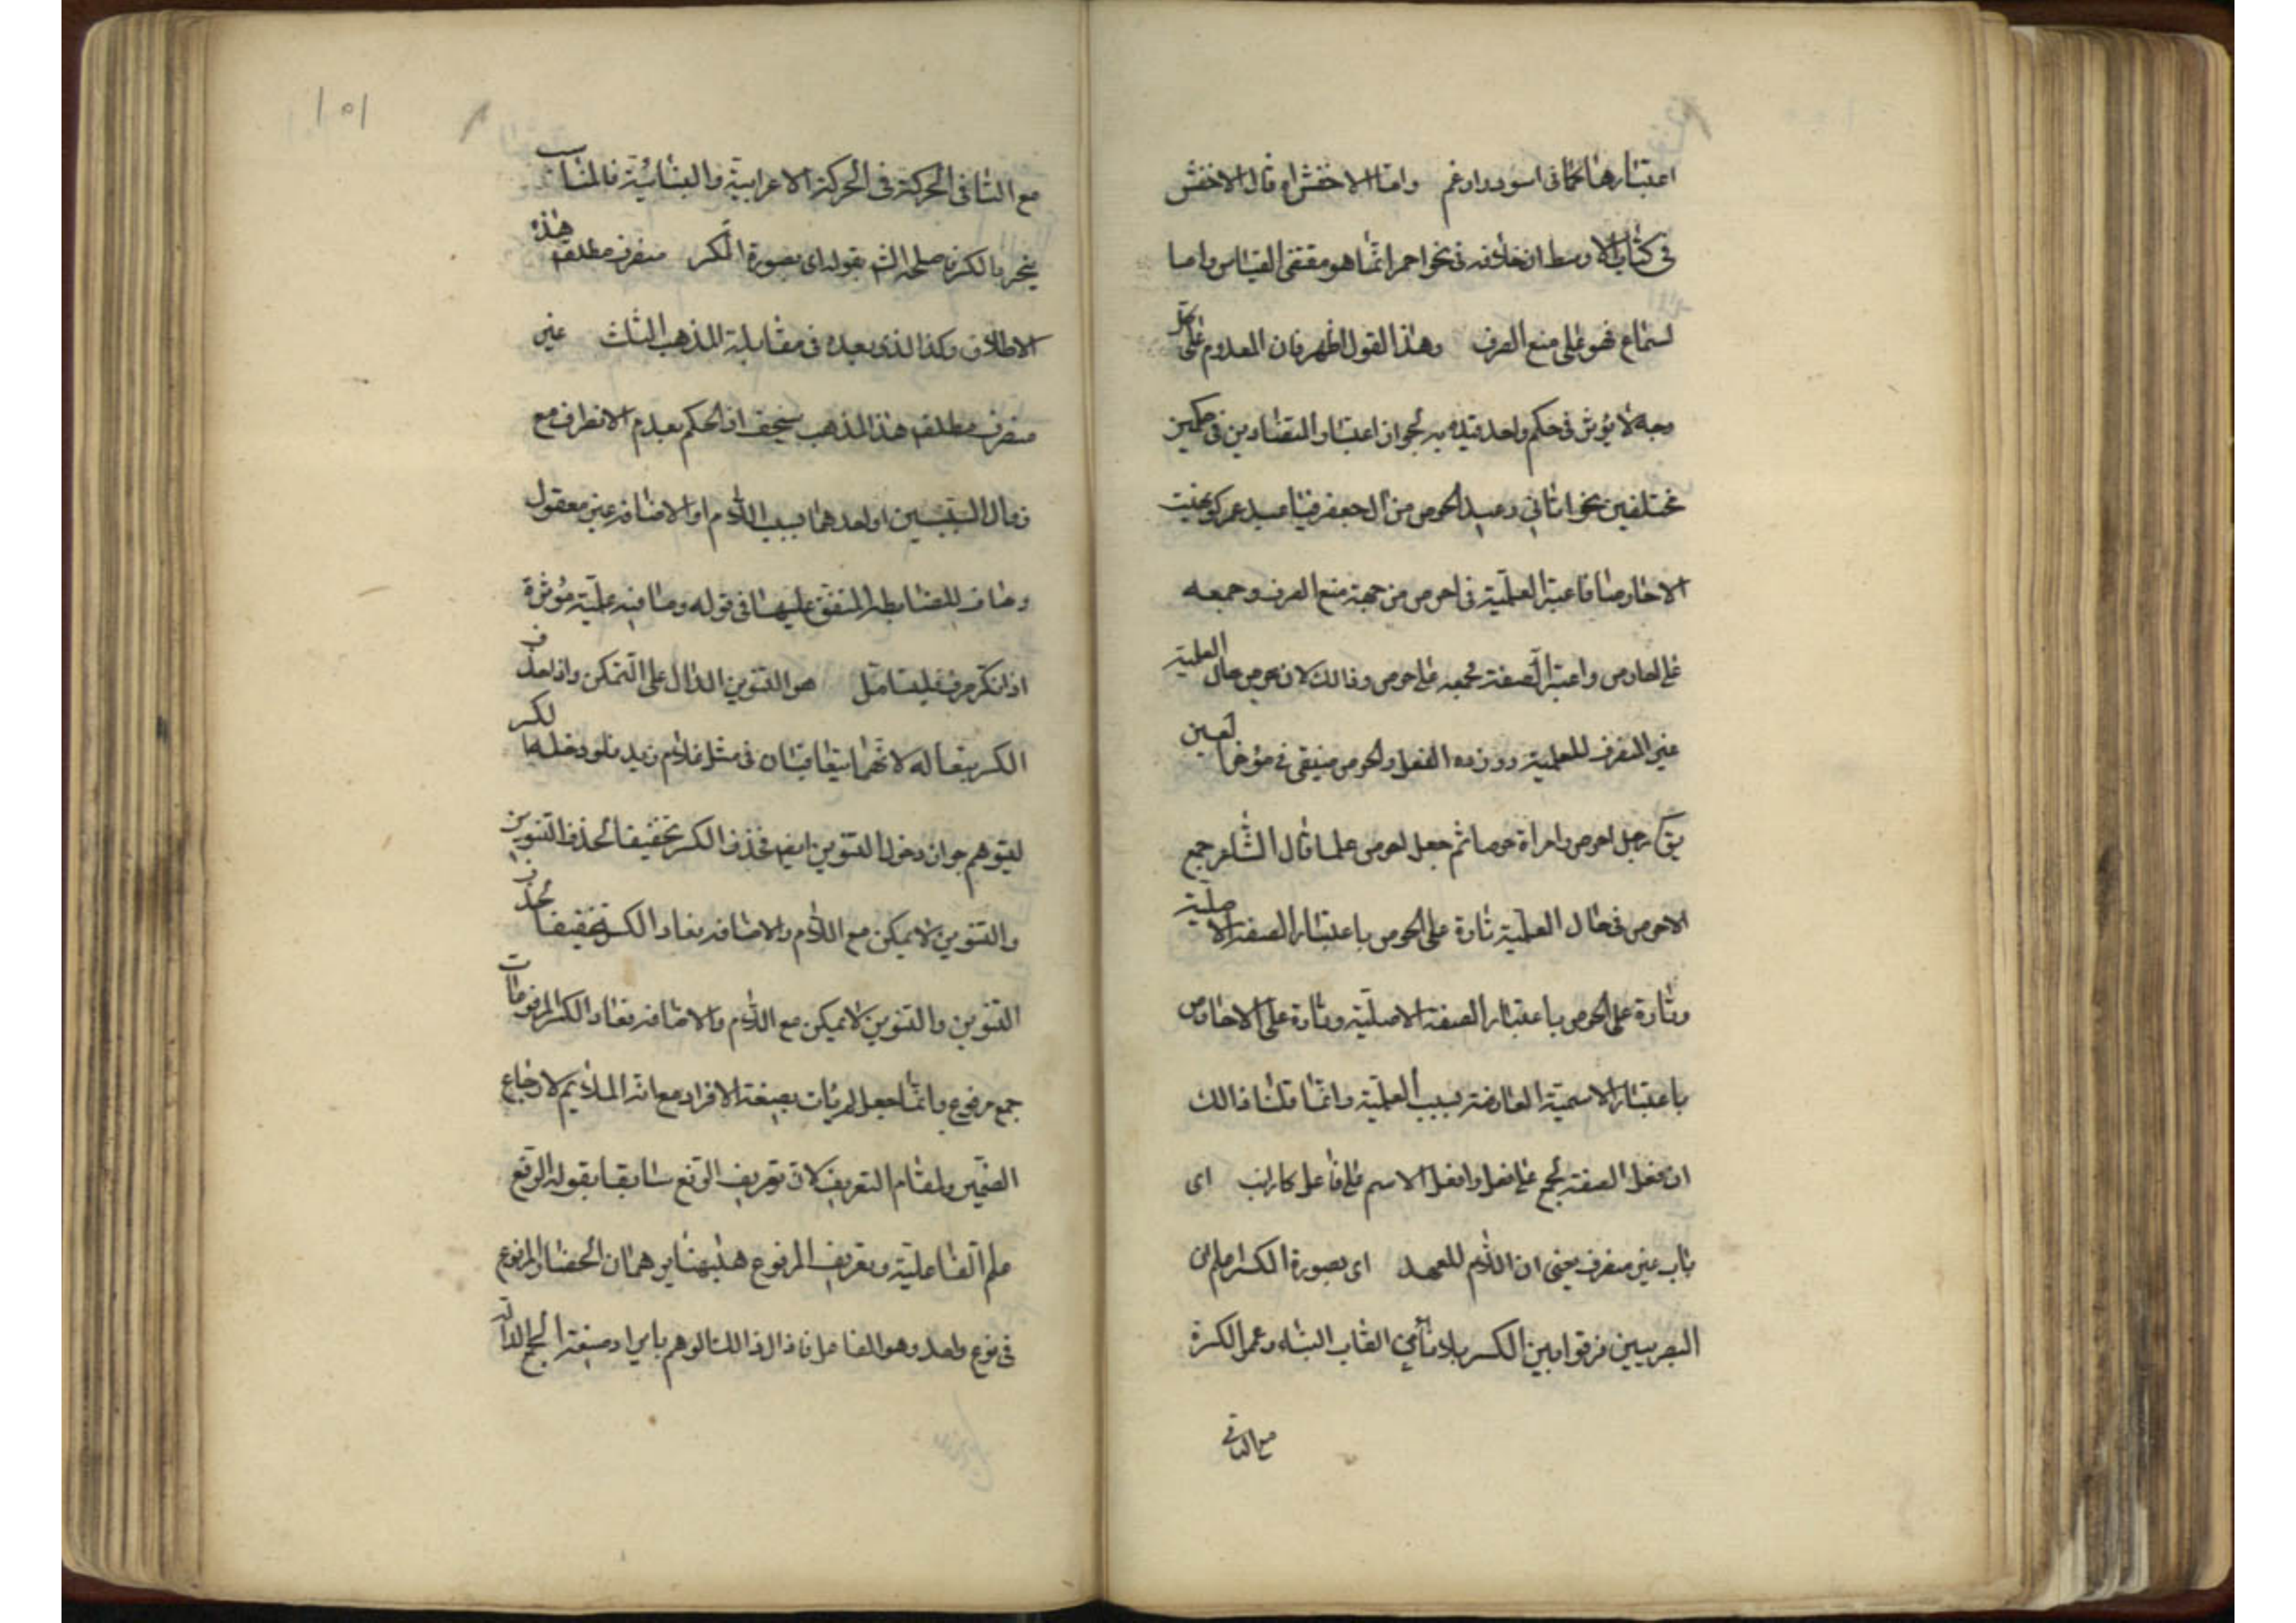 اعتبارها كما فى اسود وارقم واما الاخفش اه قال الاخفش
فى كتاب الاوسط ان خلافه فى نحو احمر انما هو مقتضى القياس واما
لسماع فهو على منع الصرف وهذا القول اظهر فان المعدوم على
وجه لا يؤثر فى حكم واحد قيد به لجواز اعتبار المتضادين فى حكمين
مختلفين نحو اتانى وعيد الحوص من ال جعفر فيا عبد عمرو لو نهيت
الاحاوصا فاعتبر العلمية فى احوص من جهة منع الصرف وجمعه
على احاوص واعتبر الصفة بجمعه على حوص وذالك لان احوص حال العلمية
غير المنصرف للعلمية ووزن الفعل والحوص ضيق فى مؤخر العين
يق رجل احوص وامراة حوصا ثم جعل احوص علما قال الشاعر جمع
الاحوص فى حال العلمية تارة على الحوص باعتبار الصفة الاصلية
وتارة على الحوص باعتبار الصفة الاصلية وتارة على الاحاوص
باعتبار الاسمية العارضة بسبب العلمية وانما قلنا ذالك
ان افعل الصفة يجمع على فعل وافعل الاسم على افاعل كارانب اى
باب غير منصرف يعنى ان اللام للعهد اى بصورة الكسر اعلم ان
البصريين فرقوا بين الكسر بلا تاء فى القاب البناء وعمر الكسرة
مع التاء فى
١٥١
مع التا فى الحركة فى الحركة الاعرابية والبنائية فالمناسب
ينجر بالكسرة فاصلحه الش بقوله اى بصورة الكسر منصرف مطلقا هذه
الاطلاق وكذا الذى بعيده فى مقابلة المذهب الثالث غير
منصرف مطلقا هذا المذهب سخيف اذ الحكم بعدم الانصراف مع
زوال السببين او احدهما بسبب اللام او الاضافة غير معقول
ومناف للضابطة المتفق عليها فى قوله وما فيه علمية مؤثرة
اذا نكر صرف فليتامل هو التنوين الدال على التمكن واذا حذف
الكسر تبعا له لانهما يتعاقبان فى مثل غلام زيد فلو دخله الكسر
ليتوهم جواز دخول التنوين ايضا فحذف الكسر تخفيفا لحذف التنوين
والتنوين لا يمكن مع اللام والاضافة فعاد الكسر تخفيفا لحذف
التنوين والتنوين لا يمكن مع اللام والاضافة فعاد الكسر المرفوعات
جمع مرفوع وانما جعل المرفات بصيغة الافراد مع انه الملايم لارجاع
الضمير ولمقام التعريف لان تعريف الرفع سابقا بقوله الرفع
علم الفاعلية وتعريف المرفوع ههنا يوهمان انحصار المرفوع
فى نوع واحد وهو الفاعل فازال ذالك الوهم بايراد صيغة الجمع الدالة